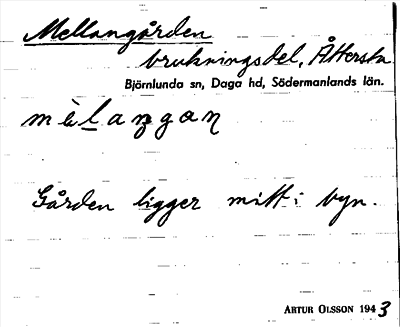 Mellangården
brukningsdel, Åttersta
Björnlunda sn, Daga hd, Södermanlands län.
Gården ligger mitt i byn.
ARTUR OLSSON 1943